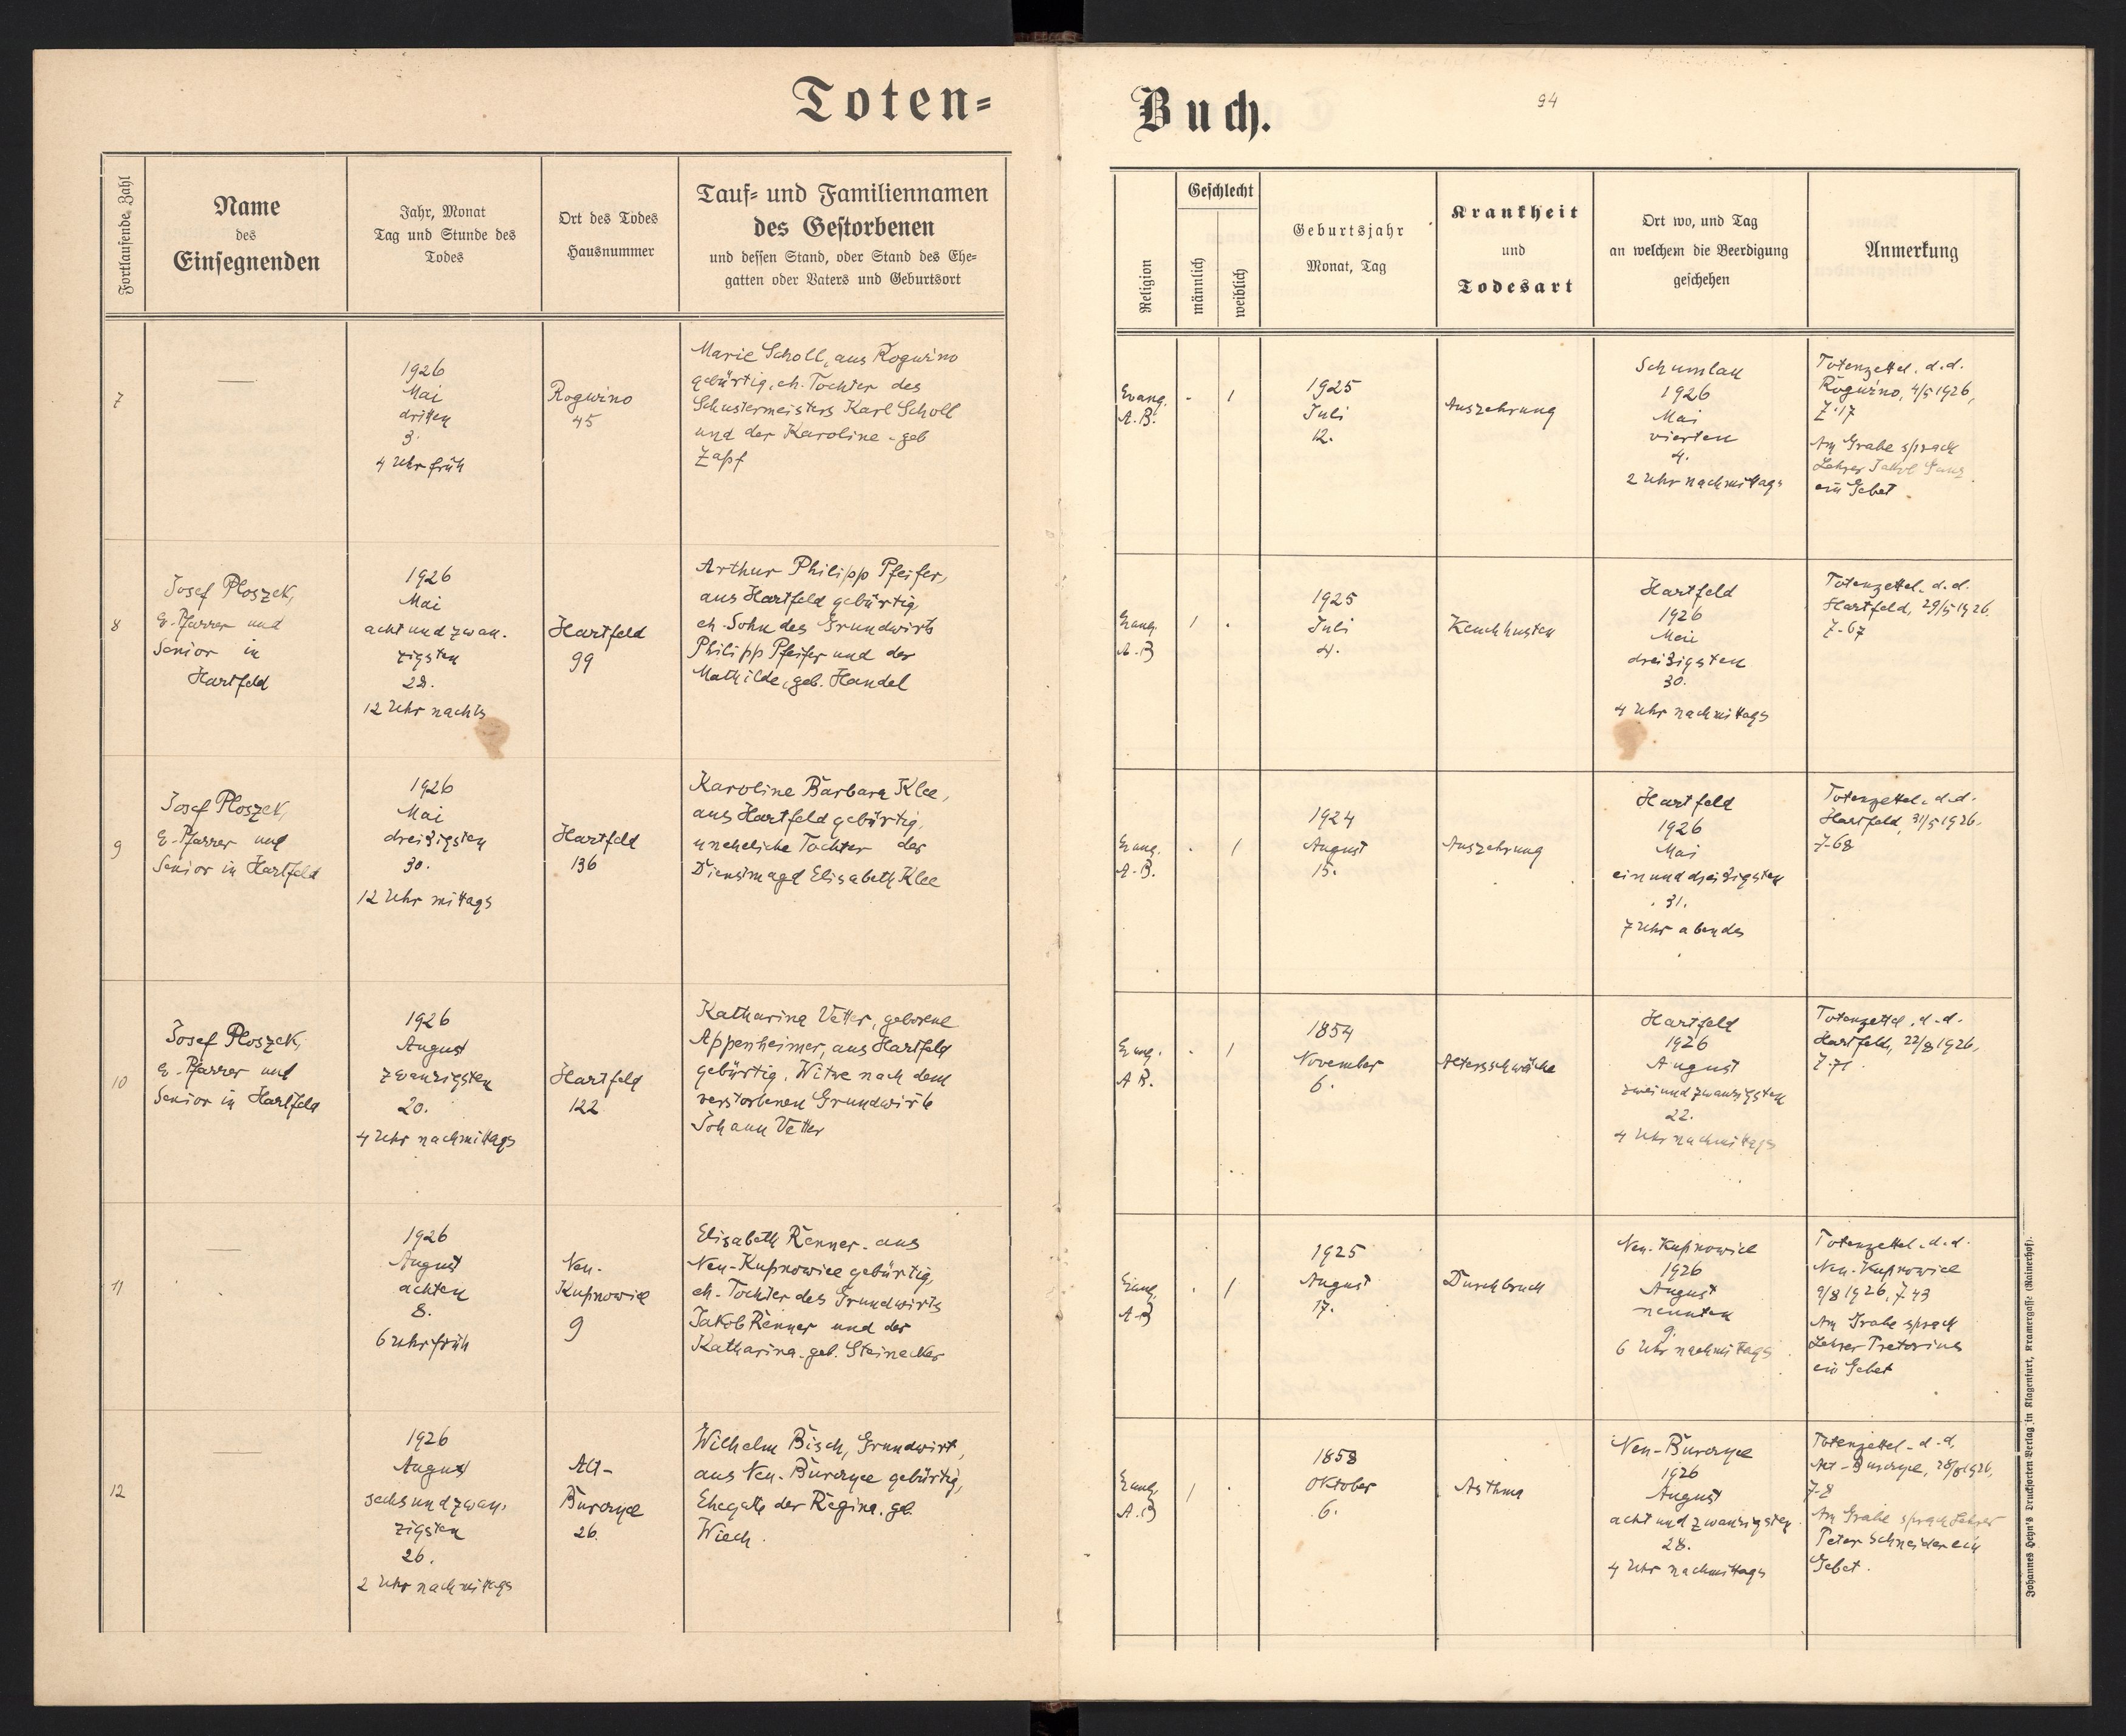 Toten=
Fortlaufende Zahl
Name
des
Einsegnenden
Jahr, Monat
Tag und Stunde des
Todes
Ort des Todes
Hausnummer
Tauf= und Familiennamen
des Gestorbenen
und dessen Stand, oder Stand des Ehe=
gatten oder Vaters und Geburtsort
7
—
1926
Mai
dritten
3.
4 Uhr früh
Roguźno
45
Marie Scholl, aus Roguźno
gebürtig, eh. Tochter des
Schustermeisters Karl Scholl
und der Karoline - geb
Zapf
8
Josef Ploszek,
E. Pfarrer und
Senior in
Hartfeld
1926
Mai
acht und zwan-
zigsten
28.
12 Uhr nachts
Hartfeld
99
Arthur Philipp Pfeifer,
aus Hartfeld gebürtig
eh. Sohn des Grundwirts
Philipp Pfeifer und der
Mathilde, geb. Handel
9
Josef Ploszek,
E. Pfarrer und
Senior in Hartfeld
1926
Mai
dreißigsten
30.
12 Uhr mittags
Hartfeld
136
Karoline Barbara Klee,
aus Hartfeld gebürtig,
uneheliche Tochter der
Dienstmagd Elisabeth Klee
10
Josef Ploszek,
E. Pfarrer und
Senior in Hartfeld
1926
August
zwanzigsten
20.
4 Uhr nachmittags
Hartfeld
122
Katharina Vetter, geborene
Appenheimer, aus Hartfeld
gebürtig, Witwe nach dem
verstorbenen Grundwirte
Johann Vetter
11
—
1926
August
achten
8.
6 Uhr früh
Neu-
Kupnowice
9
Elisabeth Renner. aus
Neu-Kupnowice gebürtig,
eh. Tochter des Grundwirts
Jakob Renner und der
Katharina. geb. Steinecker
12
—
1926
August
sechs und zwan-
zigsten
26.
2 Uhr nachmittags
Alt-
Burczyce
26
Wilhelm Bisch, Grundwirt,
aus Neu-Burczyce gebürtig,
Ehegatte der Regina. geb.
Wiech.
Buch.
94
Religion
Geschlecht
männlich
weiblich
Geburtsjahr
Monat, Tag
Krankheit
und
Todesart
Ort wo, und Tag
an welchem die Beerdigung
geschehen
Anmerkung
Evang.
A.B.
-
1
1925
Juli
12.
Auszehrung
Schumlau
1926
Mai
vierten
4.
2 Uhr nachmittags
Totenzettel. d.d.
Roguźno, 4/5 1926,
Z.17
Am Grabe sprach
Lehrer Jakob
ein Gebet.
Evang.
A.B
1
.
1925
Juli
4.
Keuchhusten
Hartfeld
1926
Mai
dreißigsten
30.
4 Uhr nachmittags
Totenzettel. d.d.
Hartfeld, 29/5 1926.
Z-67
Evang.
A.B.
.
1
1924
August
15.
Auszehrung
Hartfeld
1926
Mai
einunddreißigsten
31.
7 Uhr abends
Totenzettel. d.d.
Hartfeld, 31/5 1926.
Z-68
Evang.
A.B.
.
1
1854
November
6.
Altersschwäche
Hartfeld
1926
August
zwei und zwanzigsten
22.
4 Uhr nachmittags
Totenzettel. d.d.
Hartfeld, 22/8 1926,
Z.71.
Evang.
A.B
.
1
1925
August
17.
Durchbruch
Neu-Kupnowice
1926
August
neunten
9.
6 Uhr nachmittags
Totenzettel. d.d.
Neu-Kupnowice
9/8 1926, Z 43
Am Grabe sprach
Lehrer Pretorius
ein Gebet
Evang.
A.B
1
.
1858
Oktober
6.
Asthma
Neu-Burczyce
1926
August
acht und zwanzigsten
28.
4 Uhr nachmittags
Totenzettel. d.d.
Alt-Burczyce, 28/8 1926,
Z-8
Am Grabe sprach Lehrer
Peter Schneider ein
Gebet.
Johannes Heyn's Drucksorten Verlag in Klagenfurt, Kramergasse (Rainerhof).